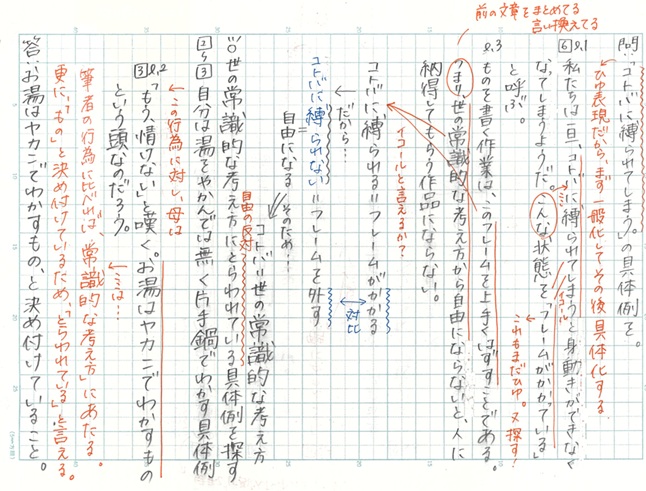 前の文章をまとめてる
言い換えてる
問:「コトバに縛られてしまう」の具体例を。
ひゆ表現だから、まず一般化してその後具体化する
6 l,1
私たちは一旦、コトバに縛られてしまうと身動きができなく
なってしまうようだ。こんな状態を「フレームがかかっている」
と呼ぶ。
イコール
これもまだひゆ。又探す!
l,3
ものを書く作業は、このフレームを上手くはずすことである。
つまり、世の常識的な考え方から自由にならないと、人に
納得してもらう作品にならない。
イコールと言えるか?
コトバに縛られる=フレームがかかる
だから…
対比
コトバに縛られない=フレームを外す
=
自由になる
そのため…
コトバ=世の常識的な考え方
自由の反対
世の常識的な考え方にとらわれている具体例を探す
2~3 自分は湯をやかんでは無く片手鍋でわかす具体例
この行為に対し、母は
3 l,2
「もう、情けない」と嘆く。お湯はヤカンでわかすもの
という頭なのだろう。
ミは…
筆者の行為に比べれば、常識的な考え方」にあたる。
更に、「もの」と決め付けているため、「とらわれている」と言える。
答:お湯はヤカンでわかすもの、と決め付けていること。